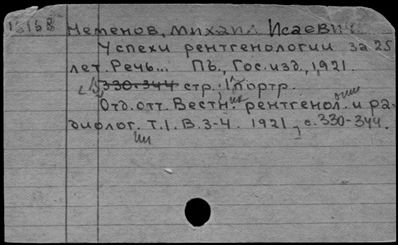 15168 Неменов, Михаил Исаевич
Успехи рентгенологии за 25
лет. Речь... Пб., Гос. изд., 1921.
15 330-344 стр. 1 портр.
Отд. отт. Вестн. рентгенол. и ра-
диолог. Т. I. В. 3-4. 1921, с. 330-344.